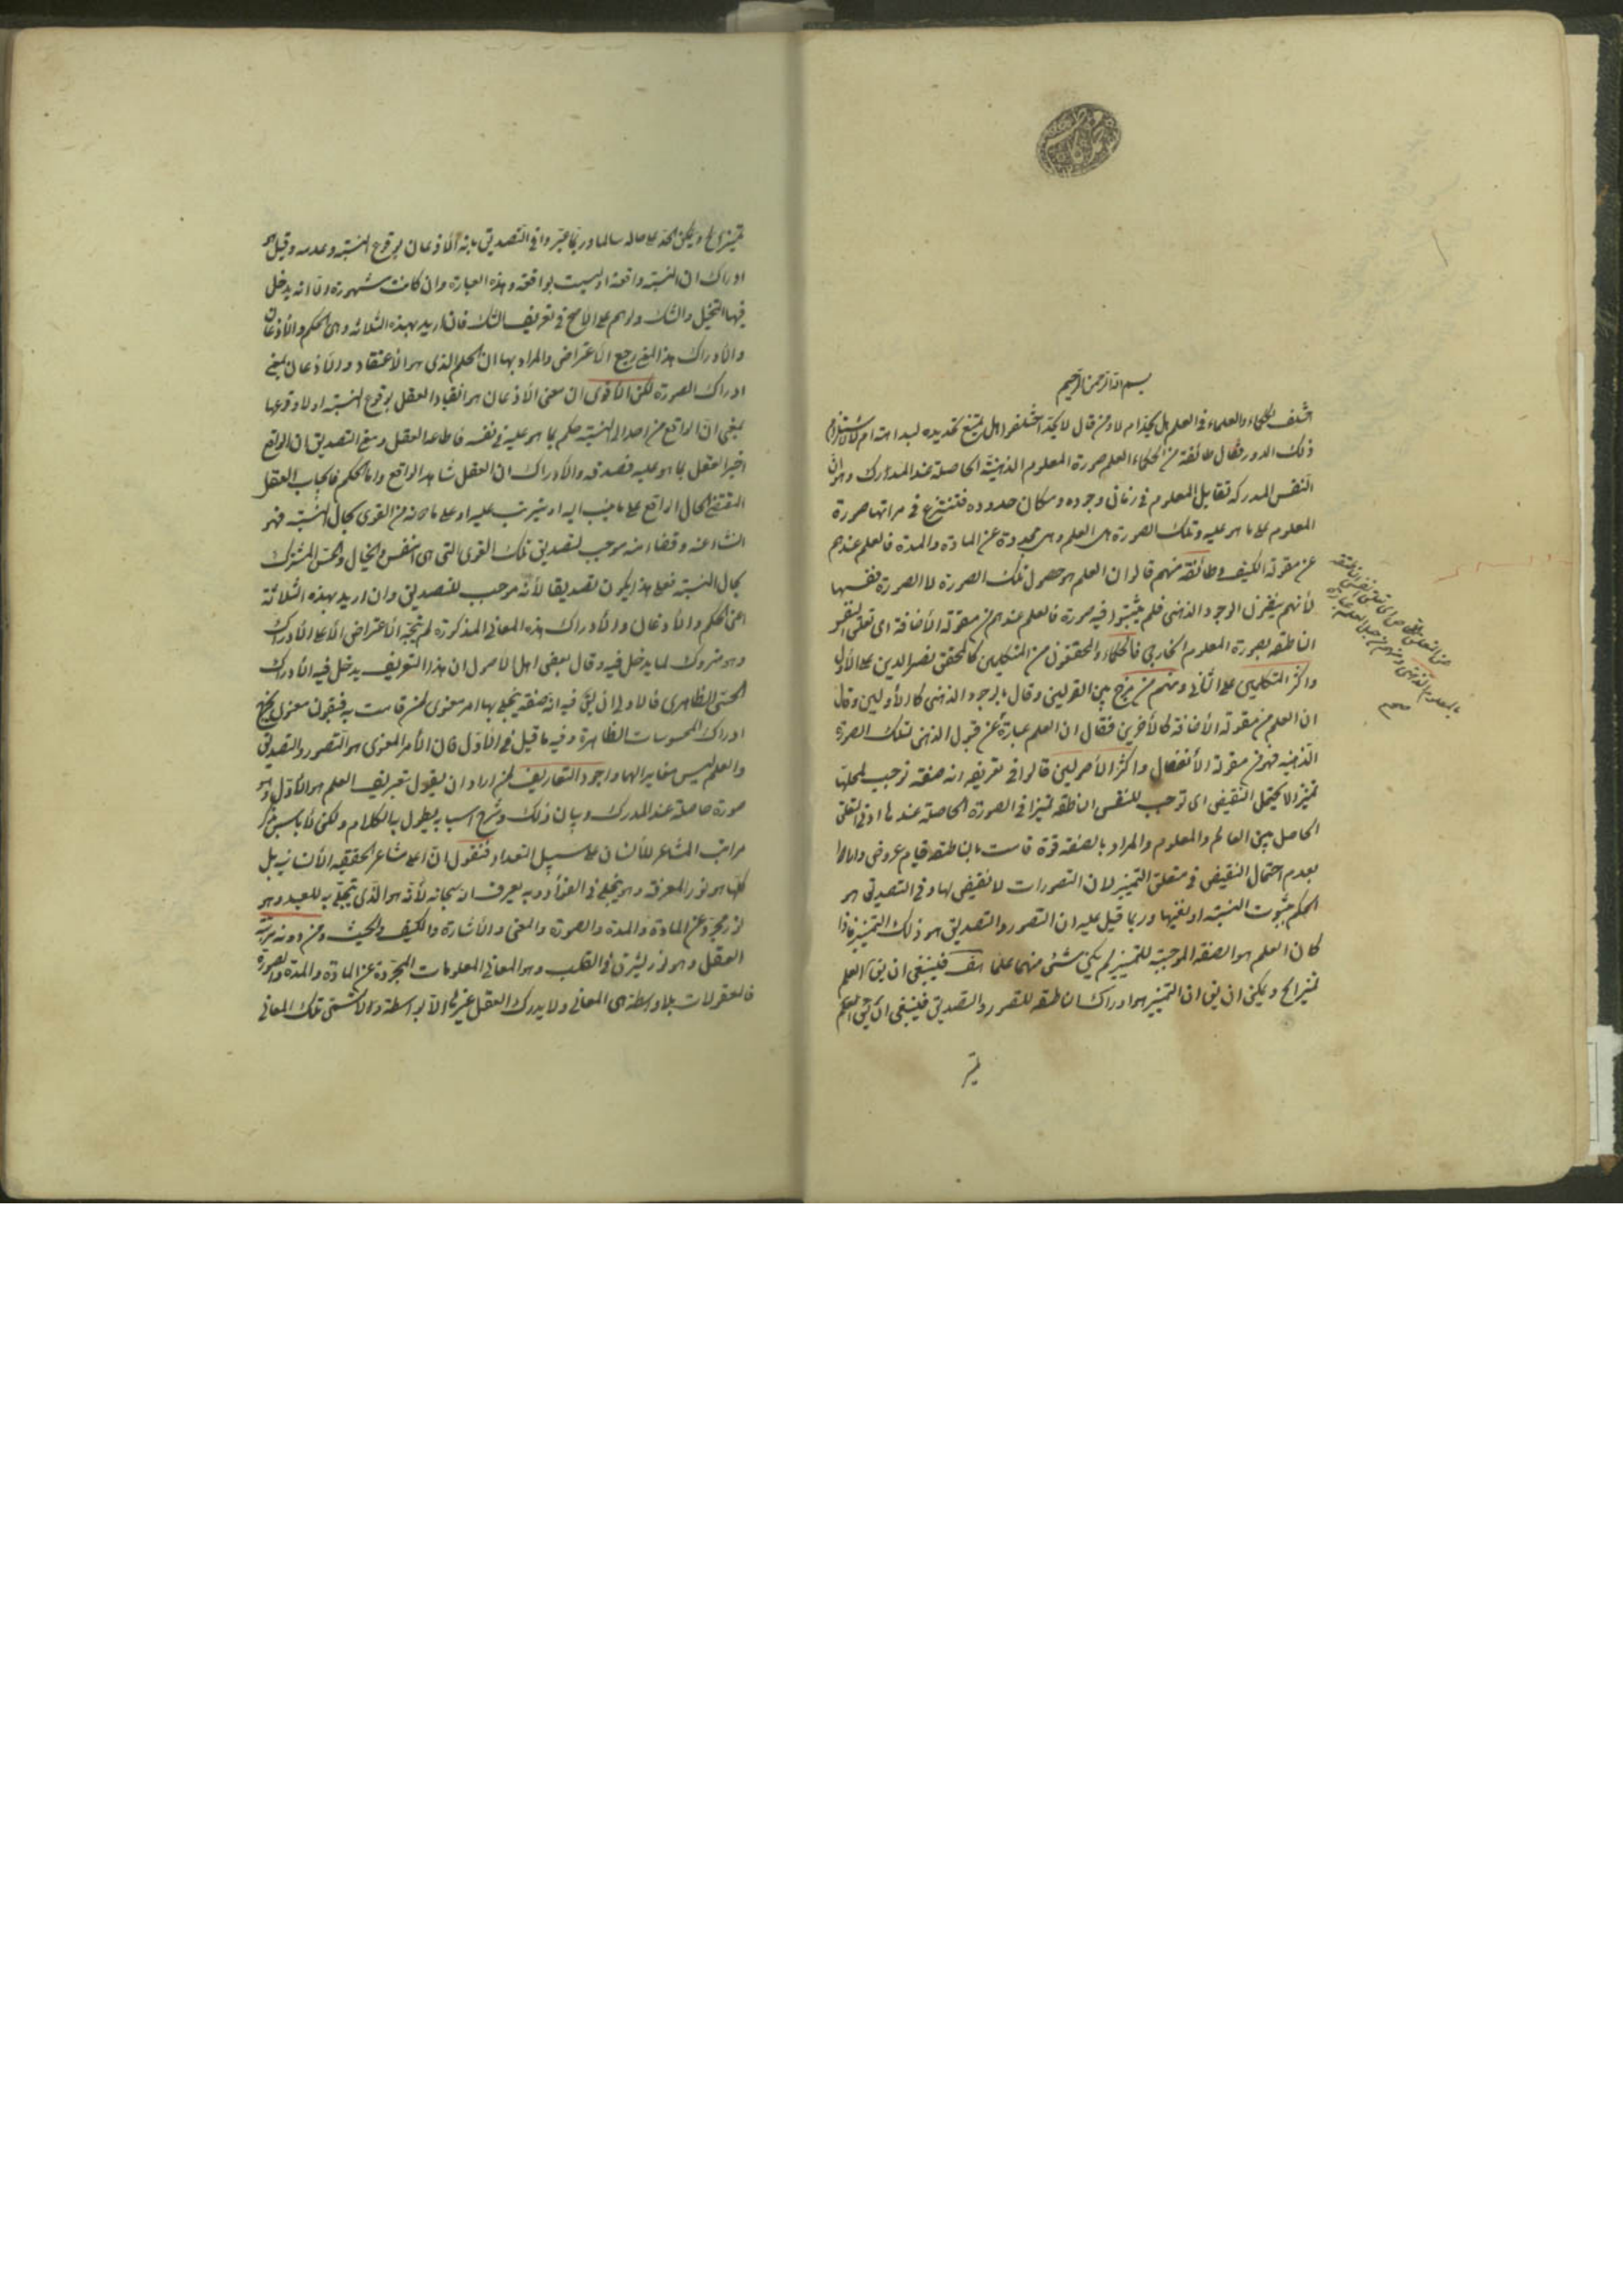 بسم الله الرحمن الرحيم
اختلف الحكماء والعلماء في العلم هل يحد ام لا ومن قال لا يحد اختلفوا هل يمتنع تحديده لبداهته ام لاستلزام
ذلك الدور فقال طائفة من الحكماء العلم صورة المعلوم الذهنية الحاصلة عند المدرك وهو ان
النفس المدركة تقابل المعلوم في زمان وجوده ومكان حدوده فتنتزع في مراتها صورة
المعلوم على ما هو عليه وتلك الصورة هي العلم وهي مجردة عن المادة والمدة فالعلم عندهم
من مقولة الكيف وطائفة منهم قالوا ان العلم هو حصول تلك الصورة لا الصورة نفسها
لأنهم ينفون الوجود الذهني فلم يثبتوا فيه صورة فالعلم عندهم من مقولة الأضافة اى تعلق النفس
الناطقة بصورة المعلوم الخارجي فالحكماء والمحققون من المتكلمين كالمحقق نصير الدين على الأول
واكثر المتكلمين على الثاني ومنهم من مزج بين القولين وقال بالوجود الذهني كالأولين وقال
ان العلم من مقولة الأضافة كالأخرين فقال ان العلم عبارة عن قبول الذهن تلك الصورة
الذهنية فهو من مقولة الأنفعال واكثر الأصوليين قالوا في تعريفه انه صفة توجب لمحلها
تميزا لا يحتمل النقيض اى توجب للنفس الناطقة تميزا في الصورة الحاصلة عندها او في التعلق
الحاصل بين العالم والمعلوم والمراد بالصفة قوة قامت بالناطقة قيام عروض وارادوا
بعدم احتمال النقيض في متعلق التميز لان التصورات لا نقيض لها وفي التصديق هو
الحكم بثبوت النسبة او نفيها وربما قيل عليه ان التصور والتصديق هو ذلك التميز فاذا
كان العلم هو الصفة الموجبة للتميز لم يكن شئ منهما علما هف فينبغي ان يق العلم
تميز الخ ويمكن ان يق ان التميز هو ادراك الناطقة للتصور والتصديق فينبغي ان يق العلم
تميز
تميز الخ ويمكن الحد على حاله سالما وربما عبروا في التصديق بانه الأذعان بوقوع النسبة وعدمه وقيل هو
ادراك ان النسبة واقعة او ليست بواقعة وهذه العبارة وان كانت مشهورة الا انه يدخل
فيها التخيل والشك والوهم على الاصح في تعريف الشك فان اريد بهذه الثلاثه وهى الحكم والأذعان
والأدراك هذا المعنى رجع الاعتراض والمراد بها ان الحكم الذى هو الأعتقاد والأذعان بمعنى
ادراك الصورة لكن الأقوى ان معنى الأذعان هو انقياد العقل بوقوع النسبة او لا وقوعها
بمعنى ان الواقع من احدالى النسبة حكم بما هو عليه في نفسه فاطاعه العقل ومعنى التصديق ان الواقع
اخبر العقل بما هو عليه فصدقه والأدراك ان العقل شاهد الواقع واما الحكم فايجاب العقل
المقتضى لحال الواقع على ما ينسب اليه او يترتب عليه او على ما دونه من القوى بحال النسبة فهو
انشاء عنه وقضاء منه موجب لتصديق تلك القوى التى هى النفس والخيال والحس المشترك
بحال النسبة فعلى هذا يكون تصديقا لأنه موجب للتصديق وان اريد بهذه الثلاثة
اعنى الحكم والأذعان والأدراك هذه المعانى المذكورة لم يتجه الأعتراض الا على الأدراك
وهو متروك لما يدخل فيه وقال بعض اهل الأصول ان هذا التعريف يدخل فيه الأدراك
الحسى الظاهرى فالاولى ان يق فيه انه صفة يتجلى بها امر معنوى لمن قامت به فبقولى معنوى يخرج
ادراك المحسوسات الظاهرة وفيه ما قيل في الأول فان الأمر المعنوى هو التصور والتصديق
والعلم ليس مغايرا لهما واجود التعاريف لمن اراد ان يقول بتعريف العلم هو الأول وهو
صورة حاصلة عند المدرك وبيان ذلك وشرح اسبابه يطول به الكلام ولكن لا باس بذكر
مراتب المشاعر للأنسان على سبيل التعداد فنقول ان اعلى مشاعر الحقيقة الأنسانية بل
كلها هو نور المعرفة وهو يتجلى في الفؤاد وبه يعرف الله سبحانه لأنه هو الذى تجلى به للعبد وهو
نور مجرد عن المادة والمدة والصورة والمعنى والأشارة والكيف والحيث ومن دونه مرتبة
العقل وهو نور يشرق في القلب وهو المعانى المعلومات المجردة عن المادة والمدة والصورة
فالمعقولات بلا واسطة هى المعانى ولا يدرك العقل غيرها الا بواسطة والاشتى تلك المعانى